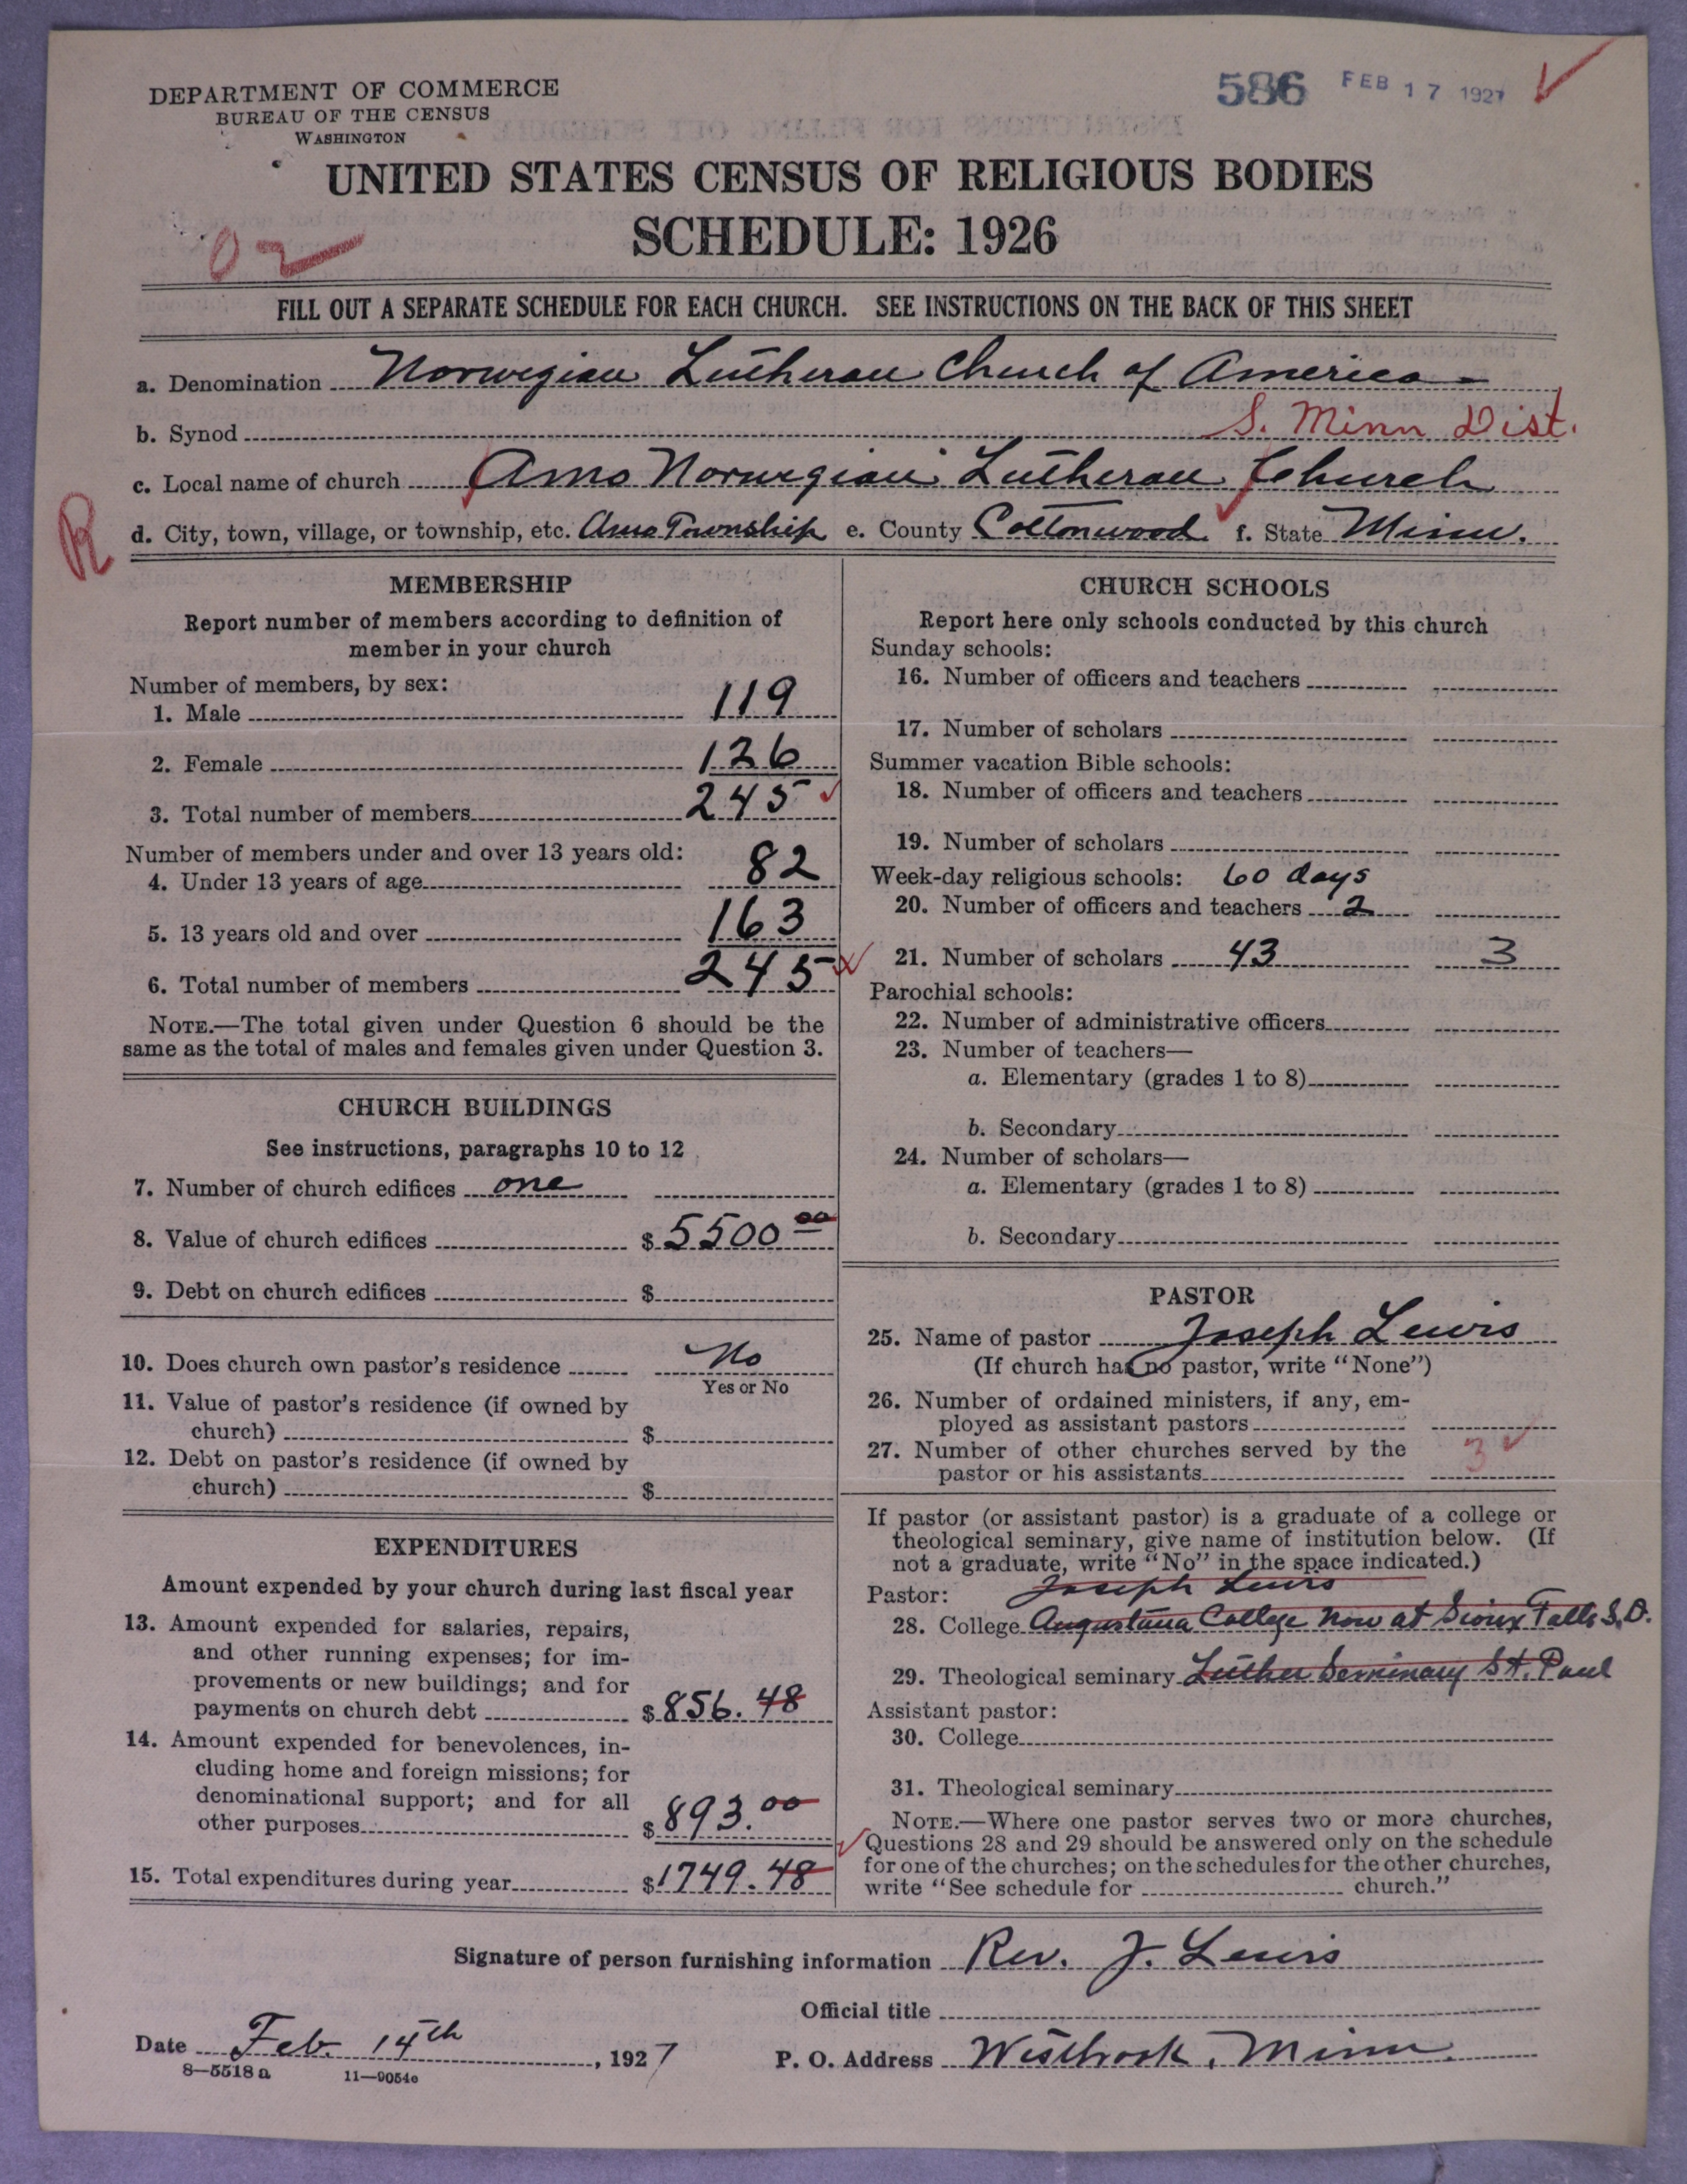 DEPARTMENT OF COMMERCE
BUREAU OF THE CENSUS
WASHINGTON
586 FEB 17 1927
UNITED STATES CENSUS OF RELIGIOUS BODIES
SCHEDULE: 1926
02
FILL OUT A SEPARATE SCHEDULE FOR EACH CHURCH. SEE INSTRUCTIONS ON THE BACK OF THIS SHEET
a. Denomination Norwegian Lutheran Church of America
b. Synod S. Minn Dist.
c. Local name of church Amo Norwegian Lutheran Church
R
d. City, town, village, or township, etc. Amo Township e. County Cottonwood f. State Minn.
MEMBERSHIP
Report number of members according to definition of
member in your church
Number of members, by sex:
1. Male 119
2. Female 126
3. Total number of members 245
Number of members under and over 13 years old:
4. Under 13 years of age 82
5. 13 years old and over 163
6. Total number of members 245
NOTE.—The total given under Question 6 should be the
same as the total of males and females given under Question 3.
CHURCH BUILDINGS
See instructions, paragraphs 10 to 12
7. Number of church edifices one
8. Value of church edifices $ 5500 00
9. Debt on church edifices $
10. Does church own pastor's residence No
Yes or No
11. Value of pastor's residence (if owned by
church) $
12. Debt on pastor's residence (if owned by
church) $
EXPENDITURES
Amount expended by your church during last fiscal year
13. Amount expended for salaries, repairs,
and other running expenses; for im-
provements or new buildings; and for
payments on church debt $ 856.48
14. Amount expended for benevolences, in-
cluding home and foreign missions; for
denominational support; and for all
other purposes $ 893.00
15. Total expenditures during year $ 1749.48
CHURCH SCHOOLS
Report here only schools conducted by this church
Sunday schools:
16. Number of officers and teachers
17. Number of scholars
Summer vacation Bible schools:
18. Number of officers and teachers
19. Number of scholars
Week-day religious schools: 60 days
20. Number of officers and teachers 2
21. Number of scholars 43 3
Parochial schools:
22. Number of administrative officers
23. Number of teachers—
a. Elementary (grades 1 to 8)
b. Secondary
24. Number of scholars—
a. Elementary (grades 1 to 8)
b. Secondary
PASTOR
25. Name of pastor Joseph Lewis
(If church has no pastor, write "None")
26. Number of ordained ministers, if any, em-
ployed as assistant pastors
27. Number of other churches served by the
pastor or his assistants 3
If pastor (or assistant pastor) is a graduate of a college or
theological seminary, give name of institution below. (If
not a graduate, write "No" in the space indicated.)
Pastor: Joseph Lewis
28. College Augustana College now at Sioux Falls S.D.
29. Theological seminary Luther Seminary St. Paul
Assistant pastor:
30. College
31. Theological seminary
NOTE.—Where one pastor serves two or more churches,
Questions 28 and 29 should be answered only on the schedule
for one of the churches; on the schedules for the other churches,
write "See schedule for church."
Signature of person furnishing information Rev. J. Lewis
Official title
Date Feb. 14th, 1927
P. O. Address Westbrook, Minn.
8—5518 a 11—9054c